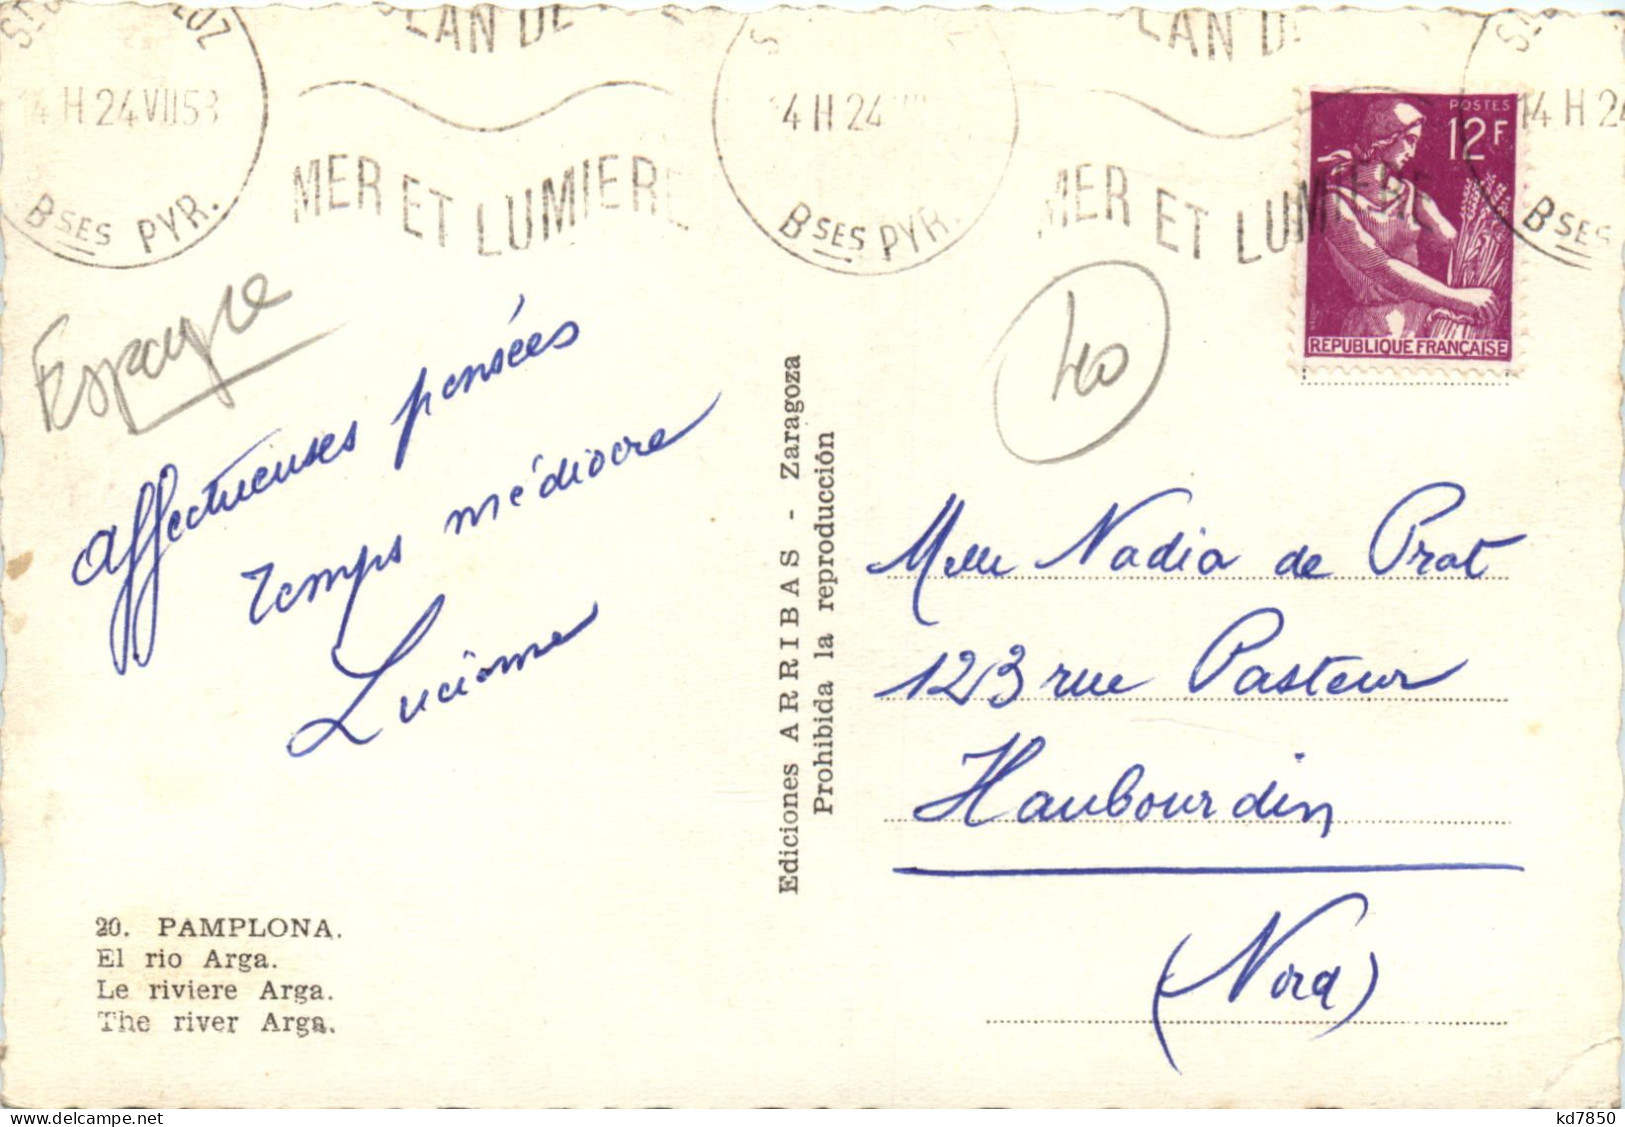 14 H 24 VII 58
Bses PYR.
MER ET LUMIERE
4 H 24
Bses PYR.
MER ET LUMIERE
14 H 24
Bses
POSTES
12F
REPUBLIQUE FRANÇAISE
Espagne
40
affectueuses pensées
temps médiocre
Lucienne
Ediciones ARRIBAS - Zaragoza
Prohibida la reproducción
Melle Nadia de Prat
123 rue Pasteur
Haubourdin
(Nord)
20. PAMPLONA.
El rio Arga.
Le riviere Arga.
The river Arga.
delcampe.net
kd7850